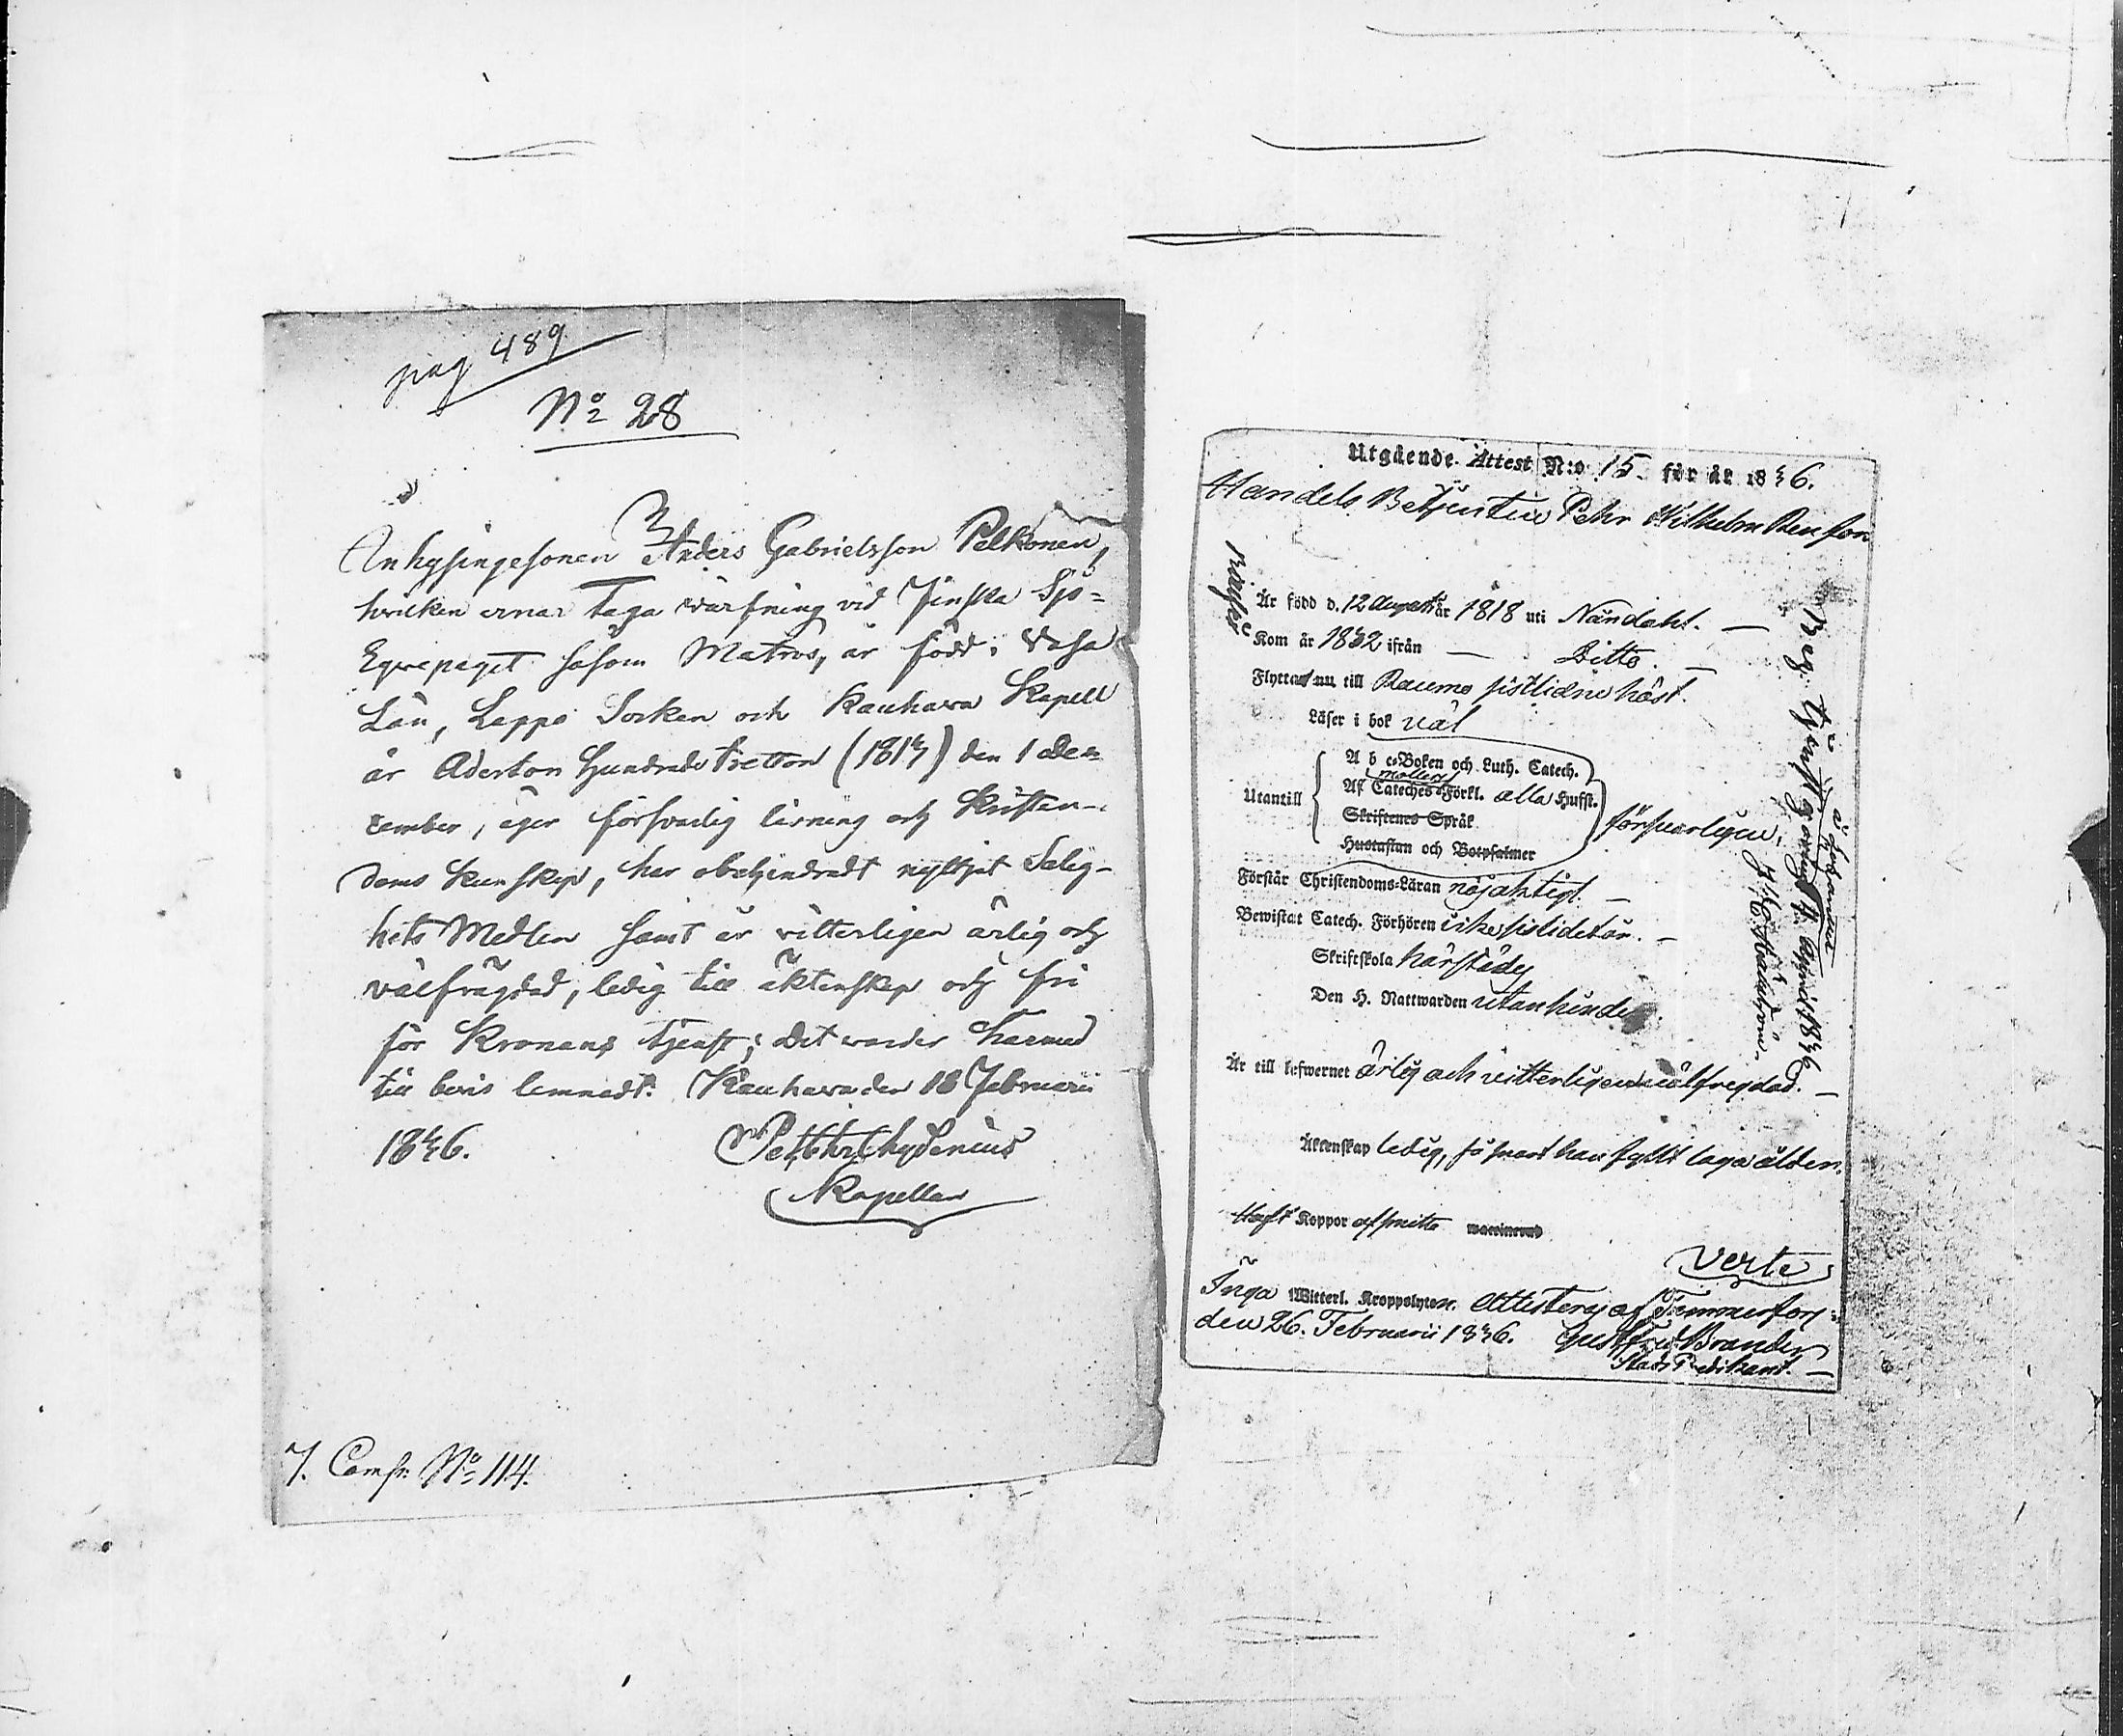 pag 489
No 28
Inhysingesonen Anders Gabrielsson Pelkonen,
hvilken ernar taga värfning vid Finska Sjö-
Equipaget såsom Matros, är född i Vasa
Län, Lappo Socken och Kauhava Kapell
år Aderton Hundrade tretton (1813) den 1 De-
cember, eger försvarlig läsning och Kristen-
doms kunskap, har obehindradt nyttjat Salig-
hets Medlen samt är vitterligen ärlig och
välfrägdad, ledig till äktenskap och fri
för Kronans tjenst; det varder härmed
till bevis lemnadt. Kauhava den 18 Februarii
1846. Pehr Chydenius
Kapellan
7. Comp. No 114.
Utgående Attest N:o 15 för år 1846.
Handels Betjenten Pehr Wilhelm
Är född d. 12 Augusti år 1818 uti Nändahl.
Kom år 1832 ifrån Ditto.
Flyttat nu till Raumo sistlidne höst.
Läser i bok väl
A b c-Boken och Luth. Catech.
Af Cateches Förkl. alla Hufst.
Utantill försvarligen,
Skriftenes Språk
Hustaflan och Botpsalmer
Förstår Christendoms-Läran nöjaktigt.
Bewistat Catech. Förhören icke sistlidet år.
Skriftskola härstädes
Den H. Nattwarden utan hinder.
Är till lefwernet ärlig och vitterligen välfregdad.
Äktenskap ledig, så snart han fyllt laga åldern.
Haft Koppor
Verte
Inga Witterl. Kroppslyten. Attesteras af Tammerfors
den 26. Februarii 1846. Gust. Brander
Stads Predikant.